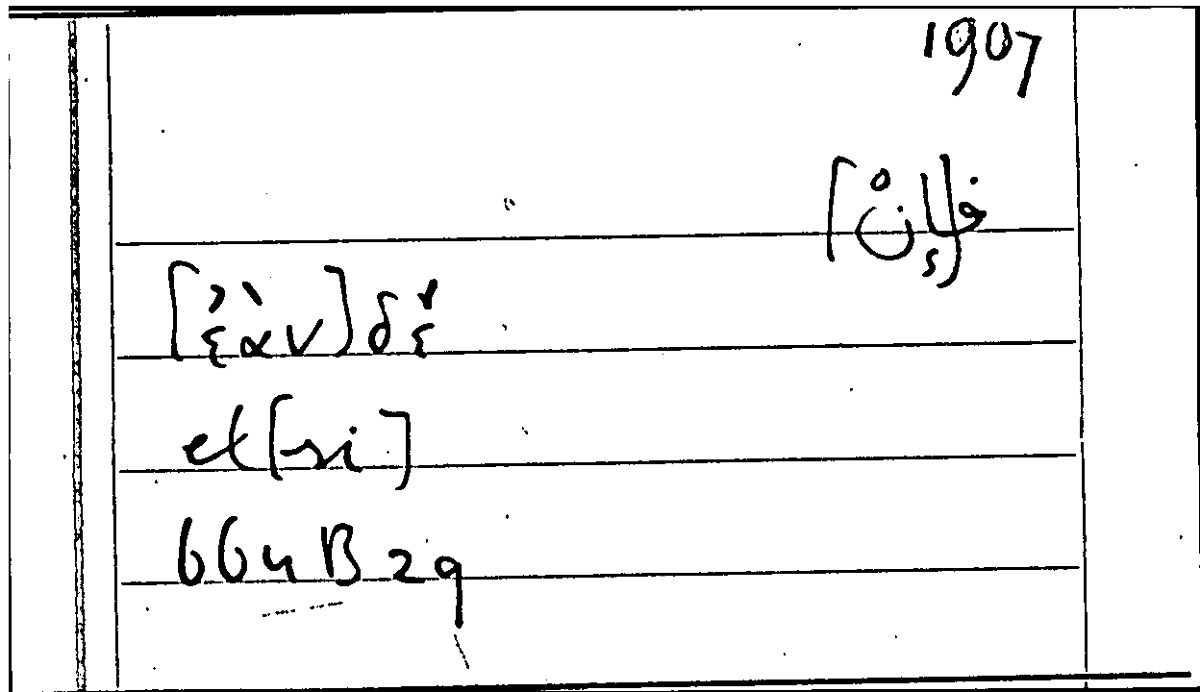 1907
ف[إنْ]
[ἐὰν] δὲ
et [si]
664 B 29